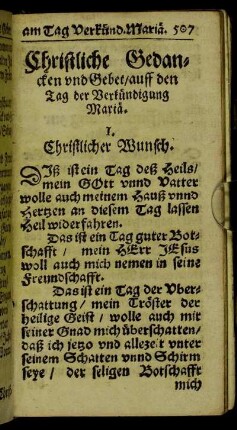 am Tag Verkünd. Mariä. 507
Christliche Gedan-
cken vnd Gebet/ auff den
Tag der Verkündigung
Mariä.
I.
Christlicher Wunsch.
DIß ist ein Tag deß Heils/
mein GOtt vnnd Vatter
wolle auch meinem Hauß vnnd
Hertzen an diesem Tag lassen
Heil widerfahren.
Das ist ein Tag guter Bot-
schafft / mein HErr JEsus
woll auch mich nemen in seine
Freundschafft.
Das ist ein Tag der Vber-
schattung / mein Tröster der
heilige Geist / wolle auch mir
seiner Gnad mich überschatten/
daß ich jetzo vnd allezeit vnter
seinem Schatten vnnd Schirm
seye / der seligen Botschafft
mich